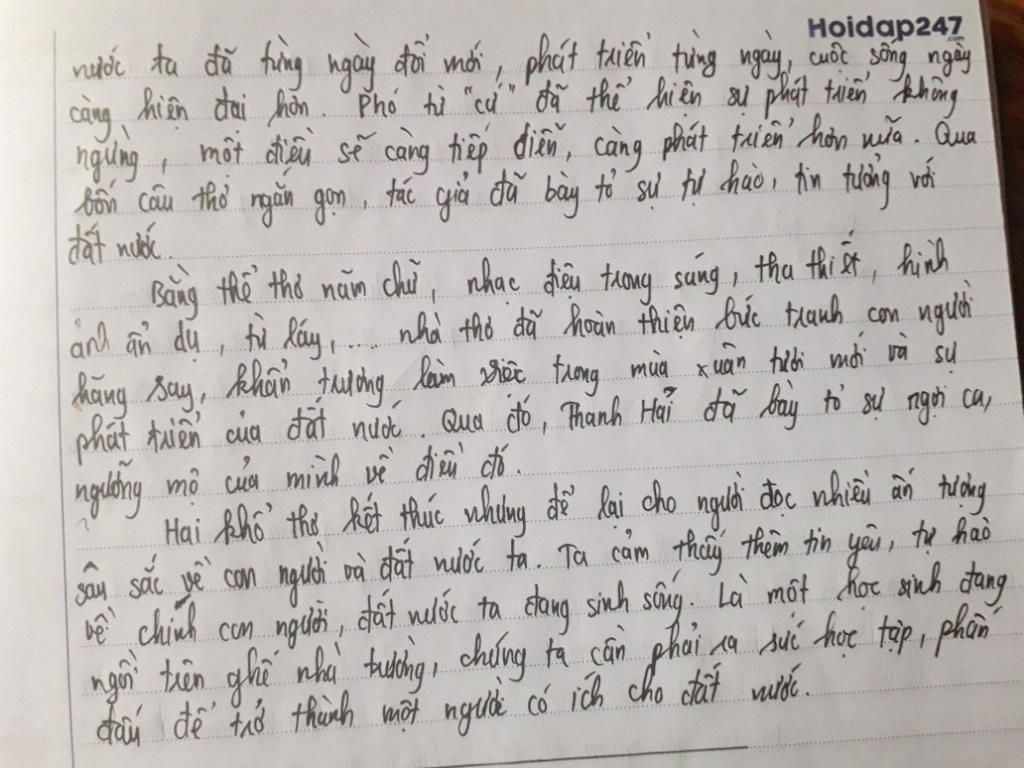 Hoidap247
.com
nước ta đã từng ngày đổi mới, phát triển từng ngày, cuộc sống ngày
càng hiện đại hơn. Phó từ "cứ" đã thể hiện sự phát triển không
ngừng, một điều sẽ càng tiếp diễn, càng phát triển hơn nữa. Qua
bốn câu thơ ngắn gọn, tác giả đã bày tỏ sự tự hào, tin tưởng với
đất nước.
Bằng thể thơ năm chữ, nhạc điệu trong sáng, tha thiết, hình
ảnh ẩn dụ, từ láy,.... nhà thơ đã hoàn thiện bức tranh con người
hăng say, khẩn trương làm việc trong mùa xuân tươi mới và sự
phát triển của đất nước. Qua đó, Thanh Hải đã bày tỏ sự ngợi ca,
ngưỡng mộ của mình về điều đó.
Hai khổ thơ kết thúc nhưng để lại cho người đọc nhiều ấn tượng
sâu sắc về con người và đất nước ta. Ta cảm thấy thêm tin yêu, tự hào
về chính con người, đất nước ta đang sinh sống. Là một học sinh đang
ngồi trên ghế nhà trường, chúng ta cần phải ra sức học tập, phấn
đấu để trở thành một người có ích cho đất nước.